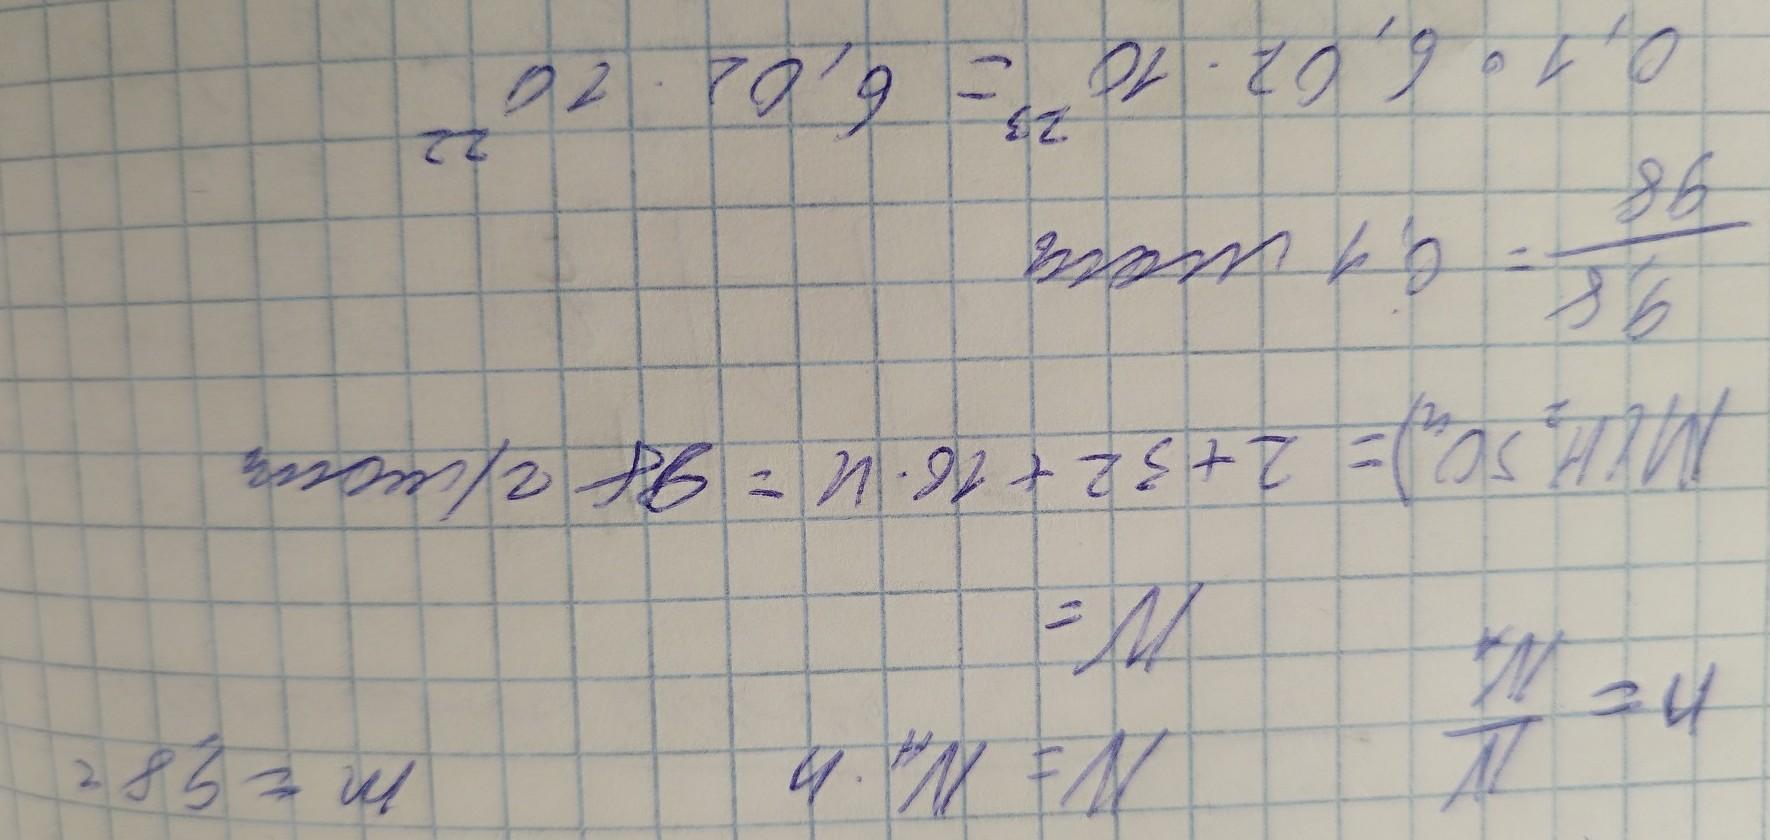 n = N/Nₐ N = Nₐ · n m = 9,8г
N =
M(H₂SO₄) = 2 + 32 + 16 · 4 = 98 г/моль
9,8/98 = 0,1 моль
0,1 · 6,02 · 10²³ = 6,02 · 10²²